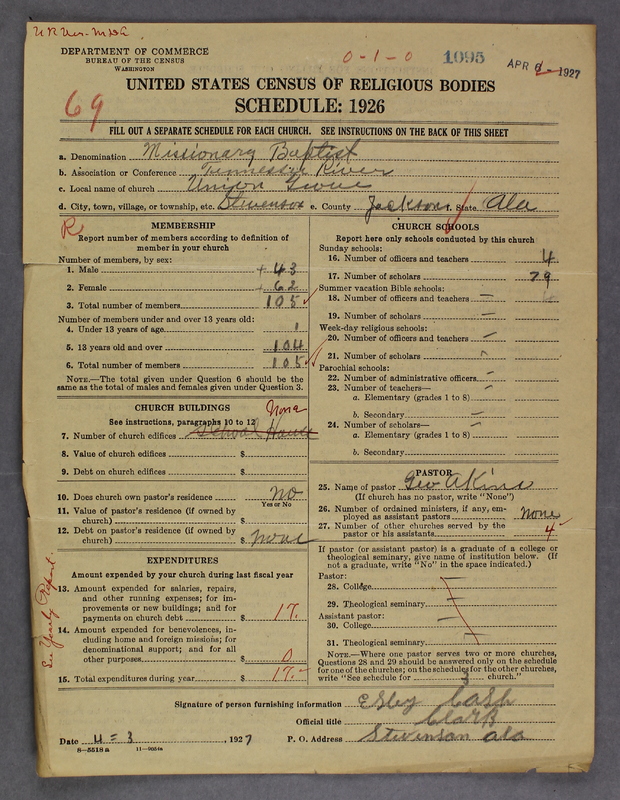 DEPARTMENT OF COMMERCE
BUREAU OF THE CENSUS
WASHINGTON
0-1-0
1095
APR 6 - 1927
UNITED STATES CENSUS OF RELIGIOUS BODIES
SCHEDULE: 1926
69
FILL OUT A SEPARATE SCHEDULE FOR EACH CHURCH. SEE INSTRUCTIONS ON THE BACK OF THIS SHEET
a. Denomination Missionary Baptist
b. Association or Conference Tennessee River
c. Local name of church Union
d. City, town, village, or township, etc. Stevenson e. County Jackson f. State Ala
R
MEMBERSHIP
Report number of members according to definition of member in your church
Number of members, by sex:
1. Male + 43
2. Female + 62
3. Total number of members 105
Number of members under and over 13 years old:
4. Under 13 years of age 1
5. 13 years old and over 104
6. Total number of members 105
NOTE.—The total given under Question 6 should be the same as the total of males and females given under Question 3.
CHURCH BUILDINGS
None
See instructions, paragraphs 10 to 12
7. Number of church edifices School House
8. Value of church edifices $
9. Debt on church edifices $
10. Does church own pastor's residence no
Yes or No
11. Value of pastor's residence (if owned by church) $
12. Debt on pastor's residence (if owned by church) $ none
EXPENDITURES
Amount expended by your church during last fiscal year
13. Amount expended for salaries, repairs, and other running expenses; for improvements or new buildings; and for payments on church debt $ 17.
14. Amount expended for benevolences, including home and foreign missions; for denominational support; and for all other purposes $ 0
15. Total expenditures during year $ 17.-
See Yearly Report.
CHURCH SCHOOLS
Report here only schools conducted by this church
Sunday schools:
16. Number of officers and teachers 4
17. Number of scholars 79
Summer vacation Bible schools:
18. Number of officers and teachers —
19. Number of scholars —
Week-day religious schools:
20. Number of officers and teachers —
21. Number of scholars
Parochial schools:
22. Number of administrative officers —
23. Number of teachers—
a. Elementary (grades 1 to 8)
b. Secondary —
24. Number of scholars—
a. Elementary (grades 1 to 8) —
b. Secondary
PASTOR
25. Name of pastor Geo Akins
(If church has no pastor, write "None")
26. Number of ordained ministers, if any, employed as assistant pastors none
27. Number of other churches served by the pastor or his assistants 4
If pastor (or assistant pastor) is a graduate of a college or theological seminary, give name of institution below. (If not a graduate, write "No" in the space indicated.)
Pastor:
28. College —
29. Theological seminary —
Assistant pastor:
30. College —
31. Theological seminary —
NOTE.—Where one pastor serves two or more churches, Questions 28 and 29 should be answered only on the schedule for one of the churches; on the schedules for the other churches, write "See schedule for 3 church."
Signature of person furnishing information Cash
Official title Clark
Date 4 = 3, 1927 P. O. Address Stevenson ala
8—5518 a 11—9054a